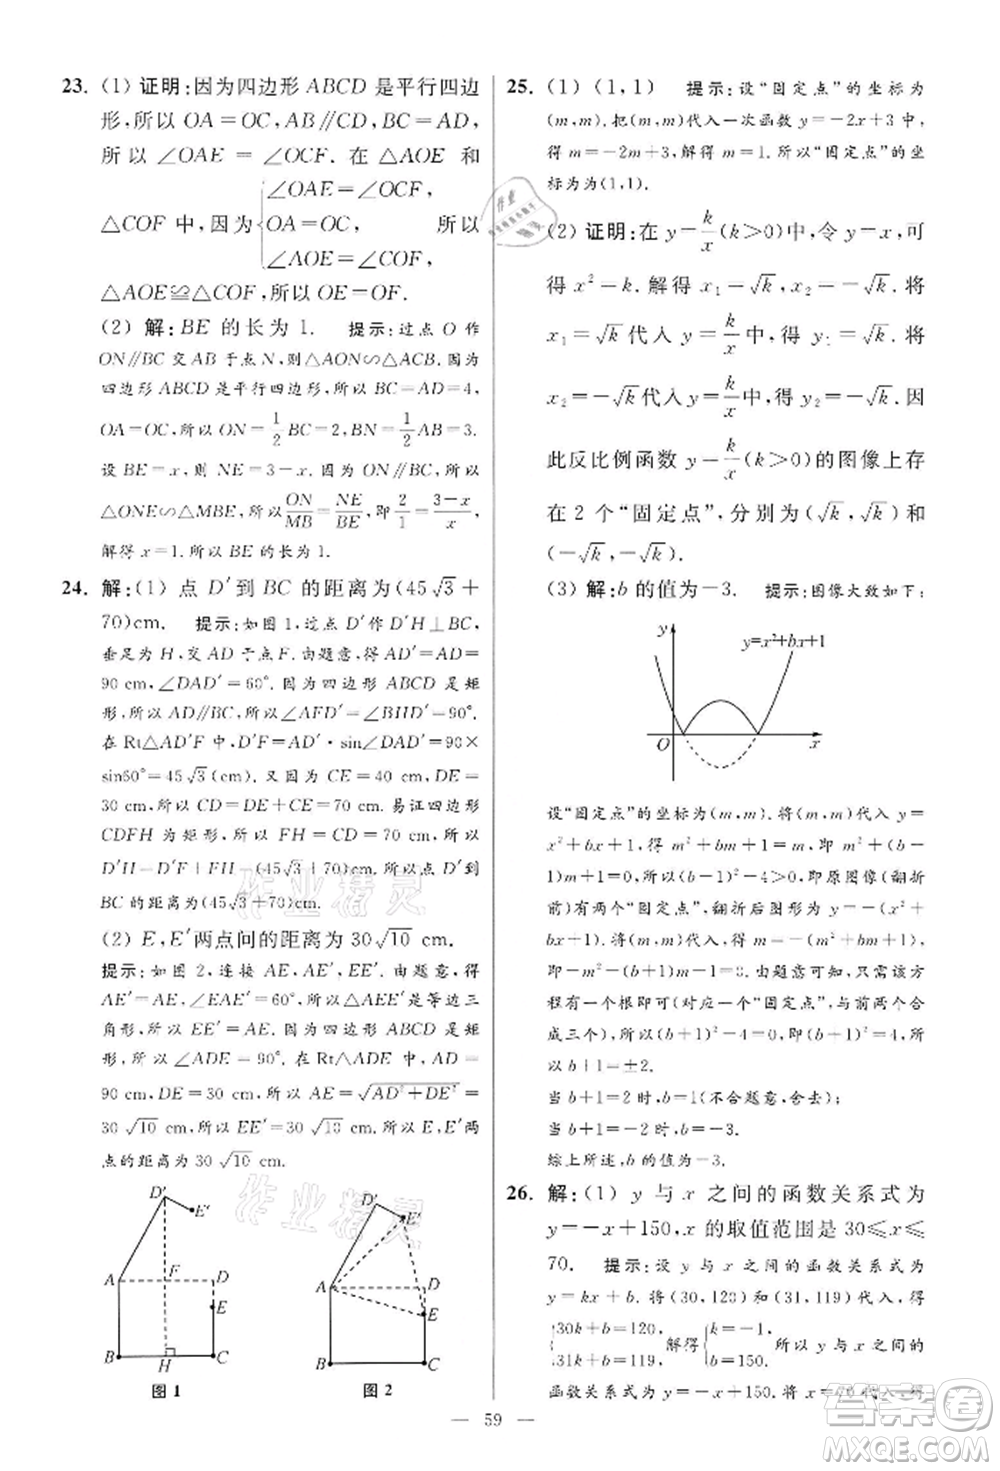 23. (1) 证明:因为四边形 ABCD 是平行四边
形,所以 OA=OC,AB∥CD,BC=AD,
所以 ∠OAE=∠OCF. 在 △AOE 和
△COF 中,因为 { ∠OAE=∠OCF, OA=OC, ∠AOE=∠COF, 所以
△AOE≌△COF,所以 OE=OF.
(2) 解:BE 的长为 1. 提示:过点 O 作
ON∥BC 交 AB 于点 N,则△AON∽△ACB.因为
四边形 ABCD 是平行四边形,所以 BC=AD=4,
OA=OC,所以 ON=1/2 BC=2,BN=1/2 AB=3.
设 BE=x,则 NE=3-x. 因为 ON∥BC,所以
△ONE∽△MBE,所以 ON/MB=NE/BE,即 2/1=(3-x)/x,
解得 x=1.所以 BE 的长为 1.
24. 解:(1) 点 D′到 BC 的距离为(45√3+
70)cm. 提示:如图 1,过点 D′作 D′H⊥BC,
垂足为 H,交 AD 于点 F. 由题意,得 AD′=AD=
90 cm,∠DAD′=60°. 因为四边形 ABCD 是矩
形,所以 AD∥BC,所以∠AFD′=∠BHD′=90°.
在 Rt△AD′F 中,D′F=AD′·sin∠DAD′=90×
sin60°=45√3(cm). 又因为 CE=40 cm,DE=
30 cm,所以 CD=DE+CE=70 cm. 易证四边形
CDFH 为矩形,所以 FH=CD=70 cm,所以
D′H=D′F+FH=(45√3+70)cm.所以点 D′到
BC 的距离为(45√3+70)cm.
(2) E,E′两点间的距离为 30√10 cm.
提示:如图 2,连接 AE,AE′,EE′. 由题意,得
AE′=AE,∠EAE′=60°,所以△AEE′是等边三
角形,所以 EE′=AE. 因为四边形 ABCD 是矩
形,所以∠ADE=90°. 在 Rt△ADE 中,AD=
90 cm,DE=30 cm,所以 AE=√(AD²+DE²)=
30√10 cm,所以 EE′=30√10 cm.所以 E,E′两
点的距离为 30√10 cm.
D′ E′ A F D E B H C
图 1
D′ E′ A D E B C
图 2
25. (1) (1,1) 提示:设“固定点”的坐标为
(m,m).把(m,m)代入一次函数 y=-2x+3 中,
得 m=-2m+3,解得 m=1.所以“固定点”的坐
标为为(1,1).
(2) 证明:在 y=k/x(k>0)中,令 y=x,可
得 x²=k. 解得 x₁=√k,x₂=-√k. 将
x₁=√k 代入 y=k/x 中,得 y₁=√k. 将
x₂=-√k代入 y=k/x中,得 y₂=-√k. 因
此反比例函数 y=k/x(k>0)的图像上存
在 2 个“固定点”,分别为(√k,√k)和
(-√k,-√k).
(3) 解:b 的值为-3. 提示:图像大致如下:
y y=x²+bx+1
O x
设“固定点”的坐标为(m,m).将(m,m)代入 y=
x²+bx+1 中,得 m²+bm+1=m. 由题意,得
(b-1)²-4>0,即原图像(翻折
前)有两个“固定点”,翻折后图形为 y=-x²-
bx-1. 将(m,m)代入,得 m²+bm+
m=-m²-1=0. 因为有三个“固定点”,所以该方
程有一个根即可(对应一个“固定点”,与前八个合
成三个),所以(b+1)²-4=0,即(b+1)²=4,
所以 b+1=±2.
当 b+1=2 时,b=1(不合题意,舍去);
当 b+1=-2 时,b=-3.
综上所述,b 的值为-3.
26. 解:(1) y 与 x 之间的函数关系式为
y=-x+150,x 的取值范围是 30≤x≤
70. 提示:设 y 与 x 之间的函数关系式为
y=kx+b. 将(30,120)和(31,119)代入,得
{ 30k+b=120, 31k+b=119, 解得 { k=-1, b=150. 所以 y 与 x 之间的
函数关系式为 y=-x+150. 将 x=70 代入,得
— 59 —
作业精灵
作业精灵
答案圈
MXQE.COM